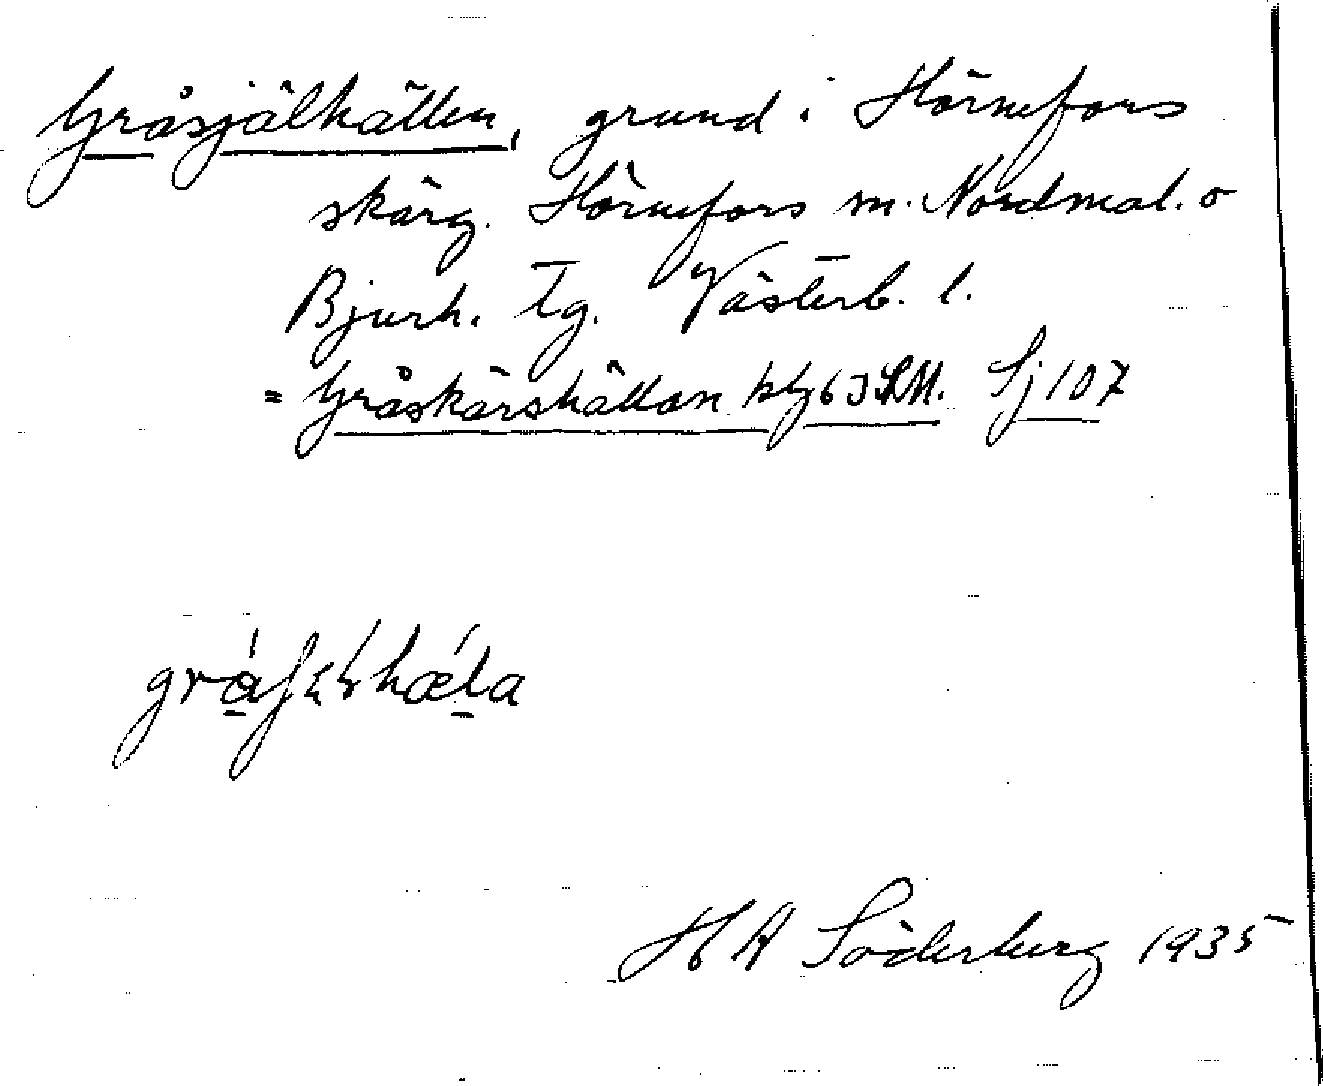 Gråsjälhällen, grund i Hörnefors
skärg. Hörnefors sn. Nordmal. o
Bjurh. tg. Västerb. l.
= Gråskärshällan kbl 63 SV. Sj 107
HA Söderberg 1935